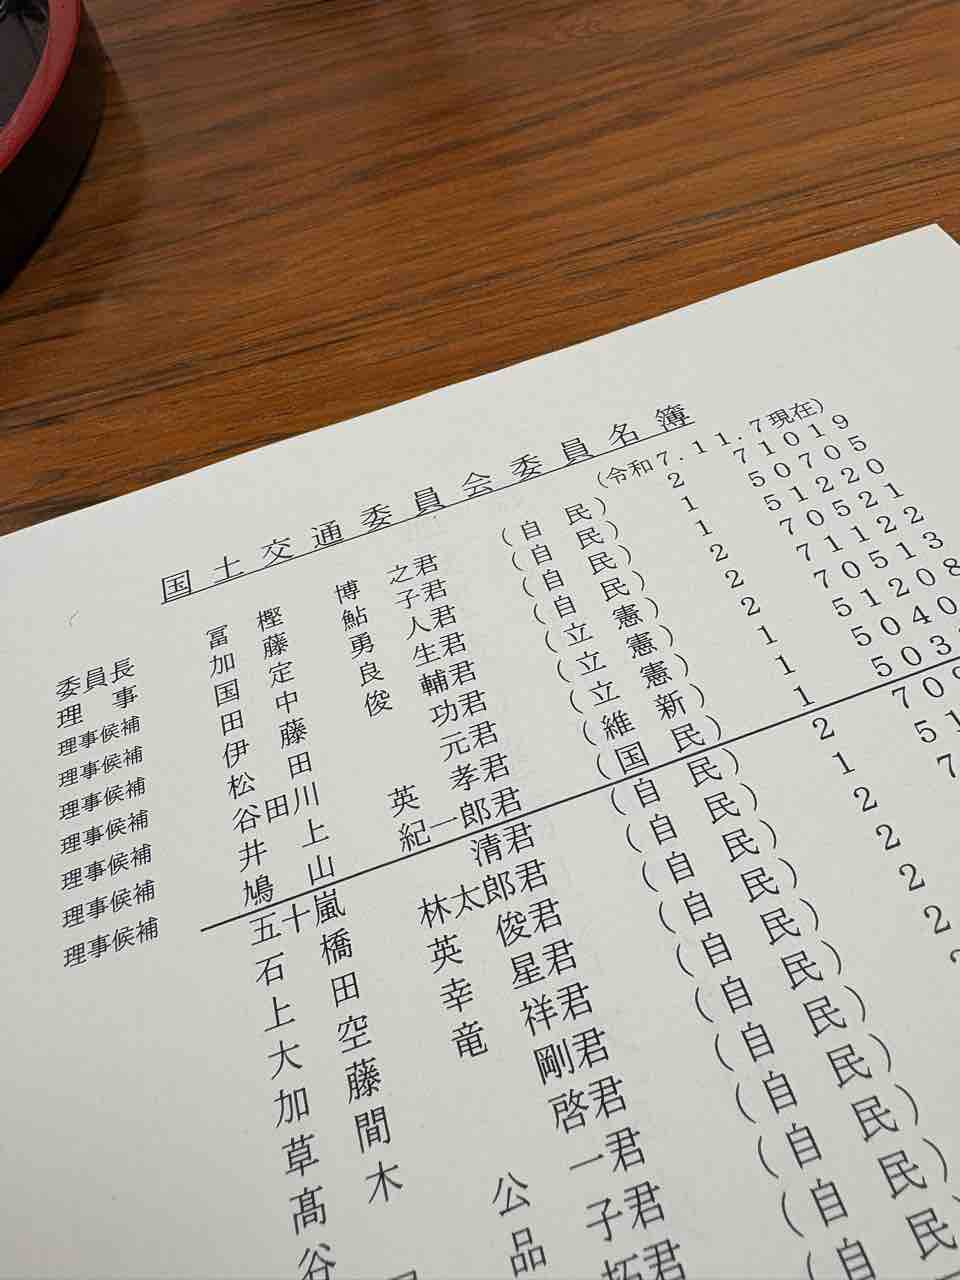 国土交通委員会委員名簿
(令和7.11.7現在)
委員長 冨樫博之君 (自民) 2 71019
理事 加藤鮎子君 (自民) 1 50705
理事候補 国定勇人君 (自民) 1 51220
理事候補 田中良生君 (自民) 2 70521
理事候補 伊藤俊輔君 (立憲) 2 71122
理事候補 松田功君 (立憲) 2 70513
理事候補 谷田川元君 (立憲) 1 51208
理事候補 井上英孝君 (維新) 1 5040
理事候補 鳩山紀一郎君 (国民) 1 503
五十嵐清君 (自民) 2 70
石橋林太郎君 (自民) 1 51
上田英俊君 (自民) 2 7
大空幸星君 (自民) 2
加藤竜祥君 (自民) 2
草間剛君 (自民) 2
髙木啓君 (自民)
谷公一君 (自民)
品子君 (自民)